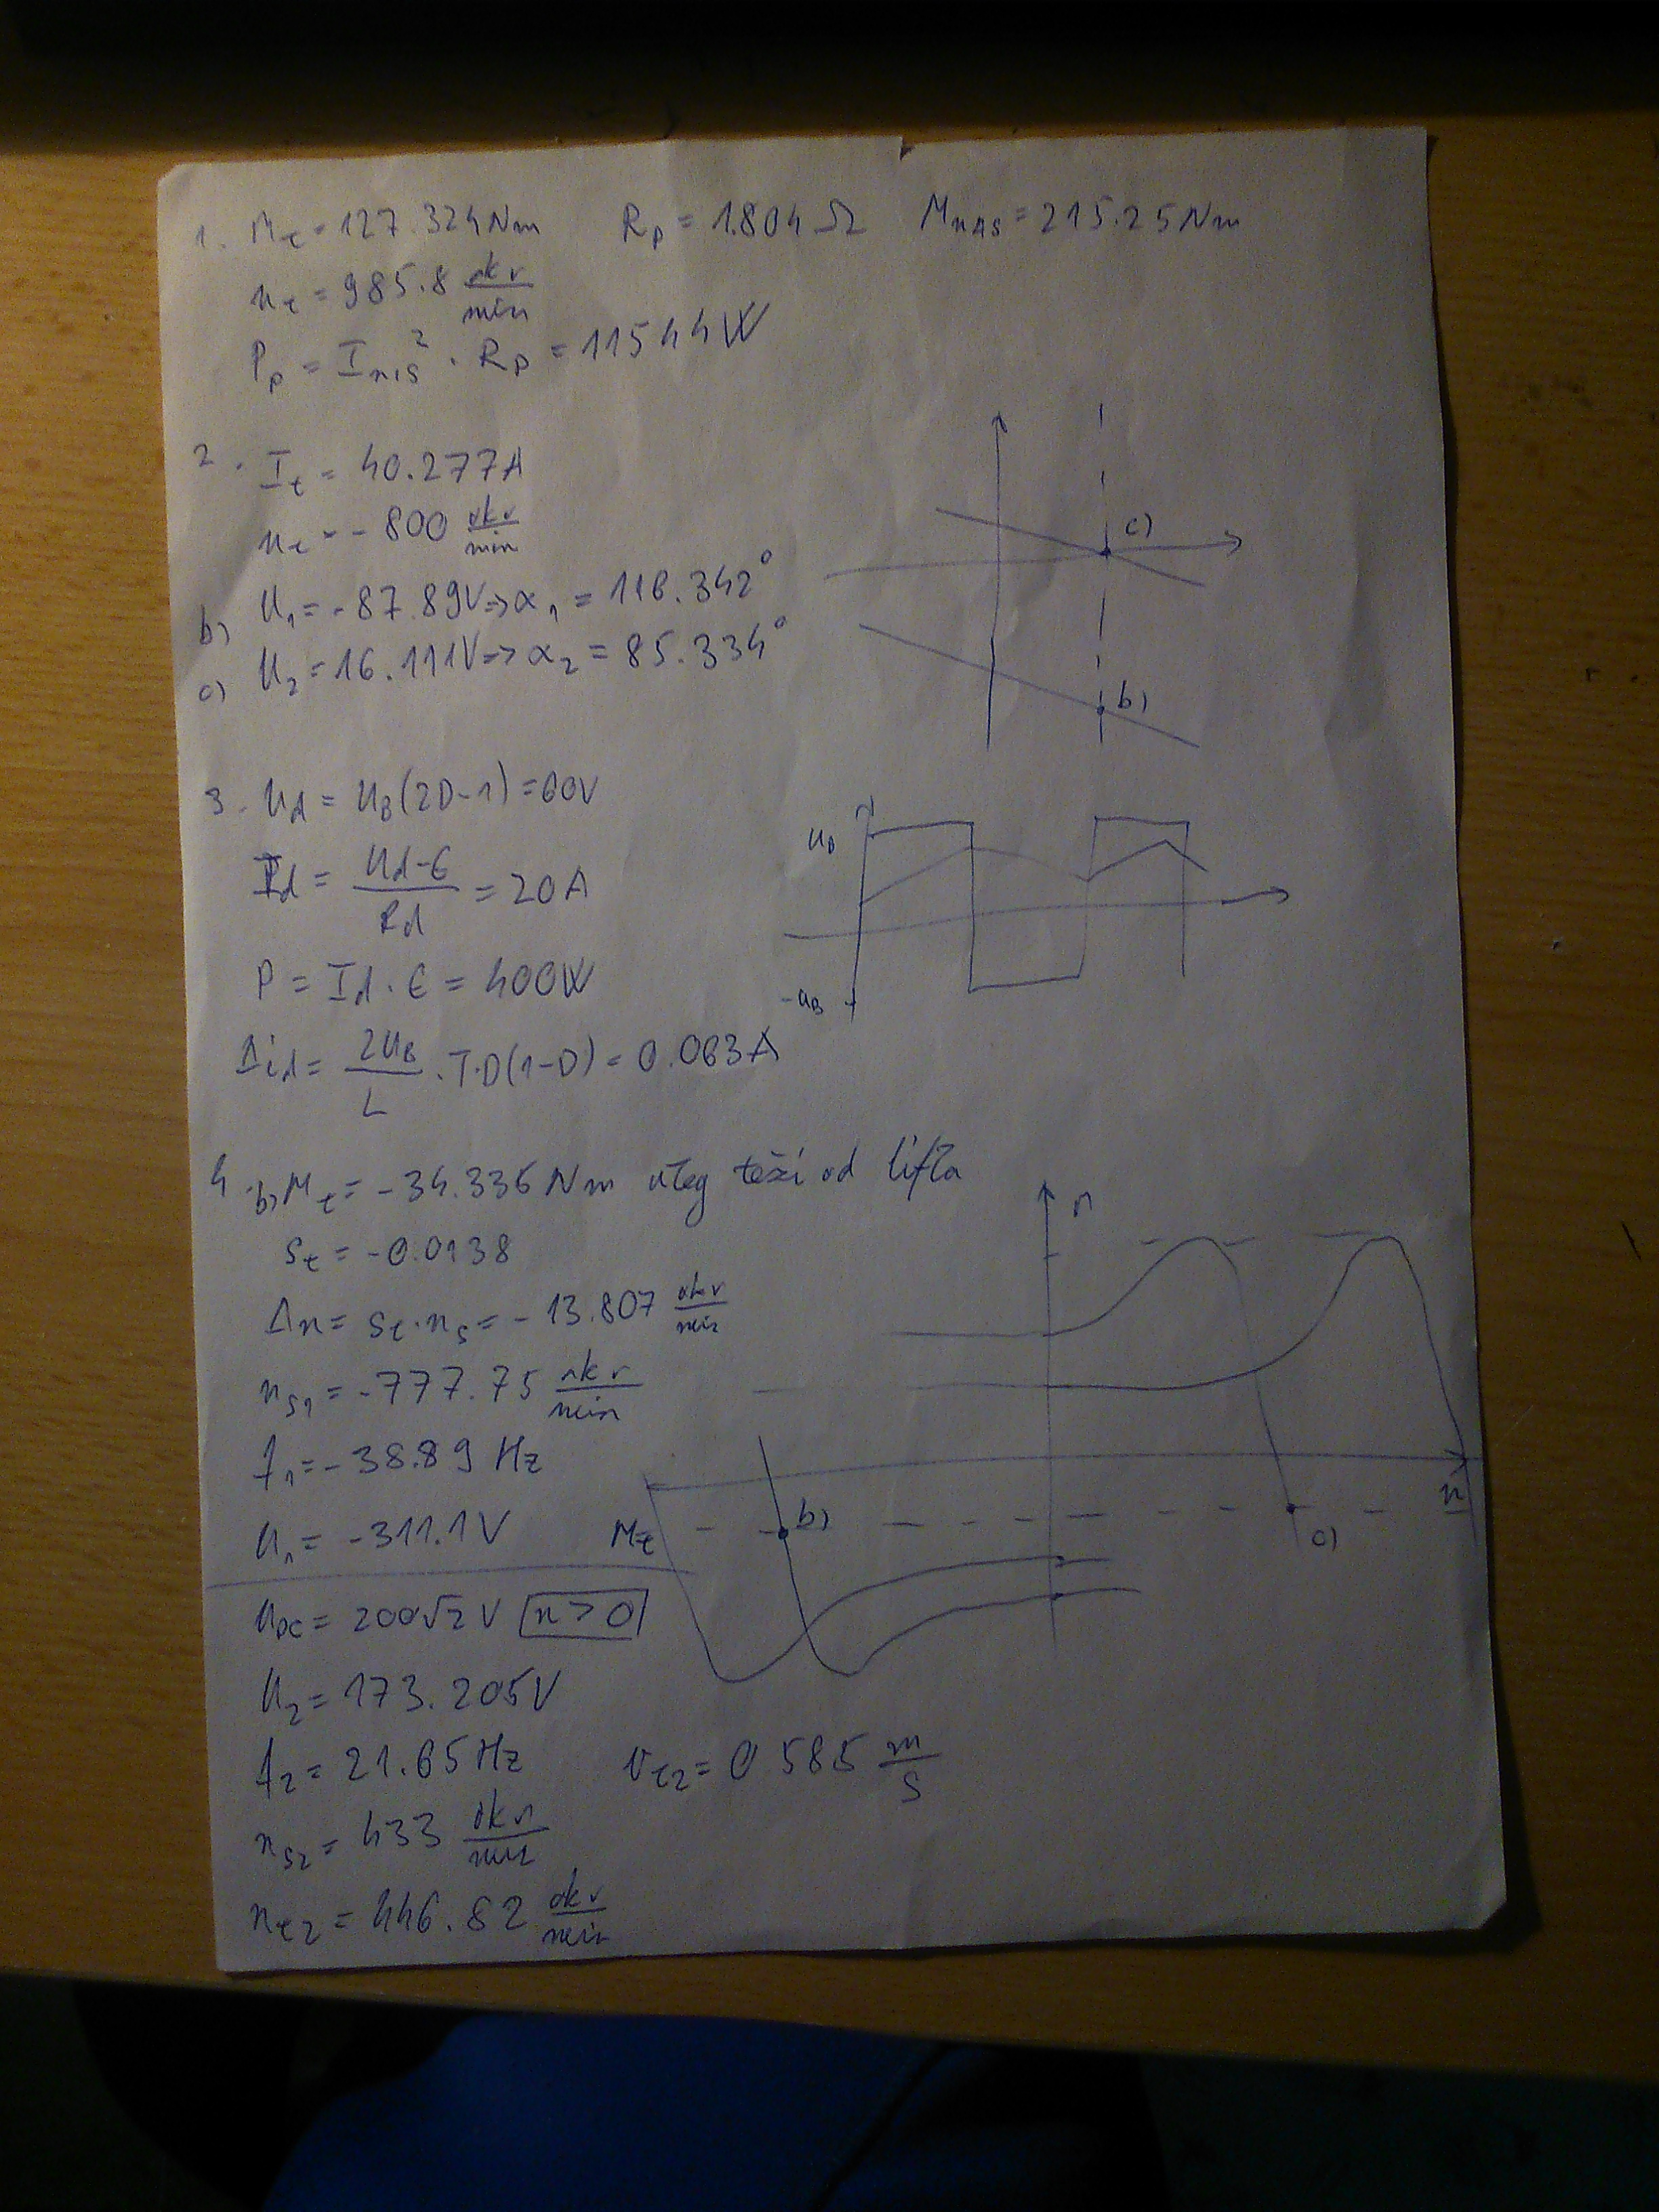 1. Mt = 127.324 Nm Rp = 1.804 Ω MnAS = 215.25 Nm
nt = 985.8 okr/min
Pp = I² · Rp = 11544 W
2. It = 40.277A
nt = - 800 okr/min
b) U1 = -87.89V => α1 = 116.342°
c) U2 = 16.111V => α2 = 85.334°
c)
b)
3. Ud = UB(2D-1) = 60V
Id = Ud-E/Rd = 20A
P = Id · E = 400W
Δid = 2UB/L · T·D(1-D) = 0.063A
UB
-UB
4. b) Mt = -34.336 Nm uteg teži od lifta
st = -0.0138
Δn = st · ns = - 13.807 okr/min
ns1 = -777.75 okr/min
f1 = - 38.89 Hz
U1 = -311.1V
UDC = 200√2 V n > 0
U2 = 173.205V
f2 = 21.65 Hz vt2 = 0.585 m/s
ns2 = 433 okr/min
nt2 = 446.82 okr/min
n
Mt
b)
c)